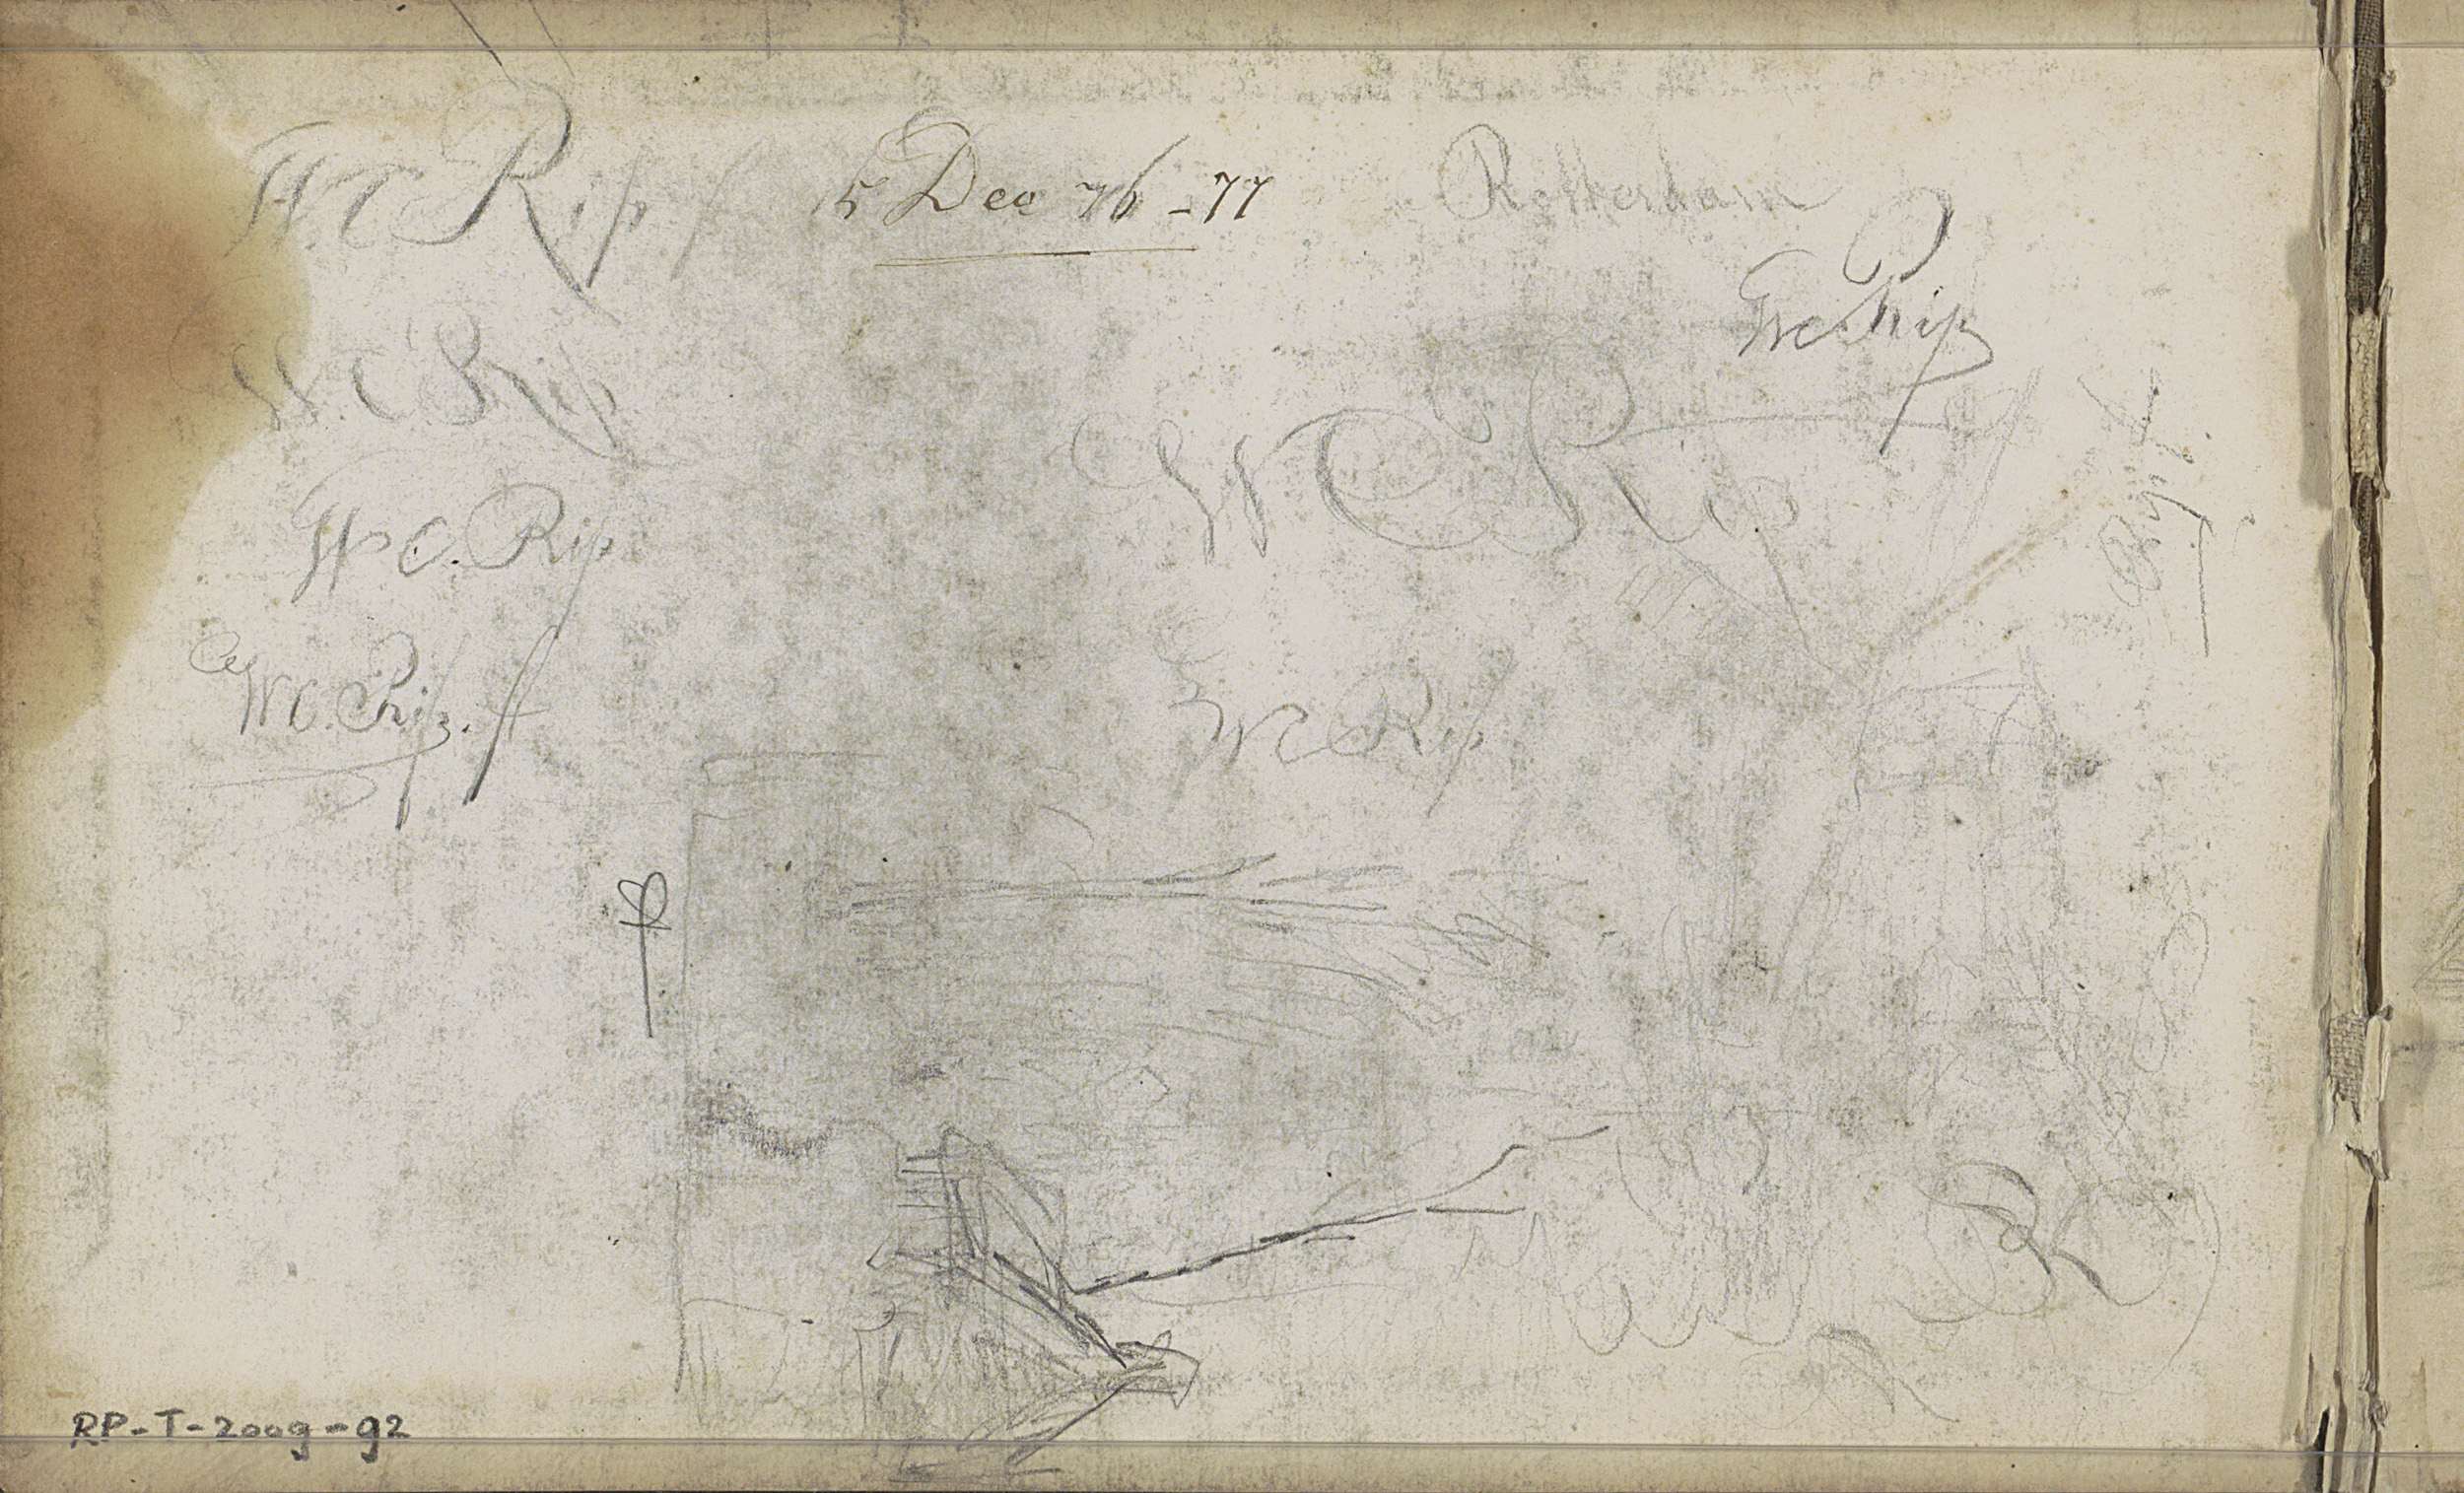 WC Rip 5 Dec 76-77 Rotterdam
WC. Rip
W C Rip
W C Rip
W C. Rip
WC. Rip.
WC Rip
RP-T-2009-92